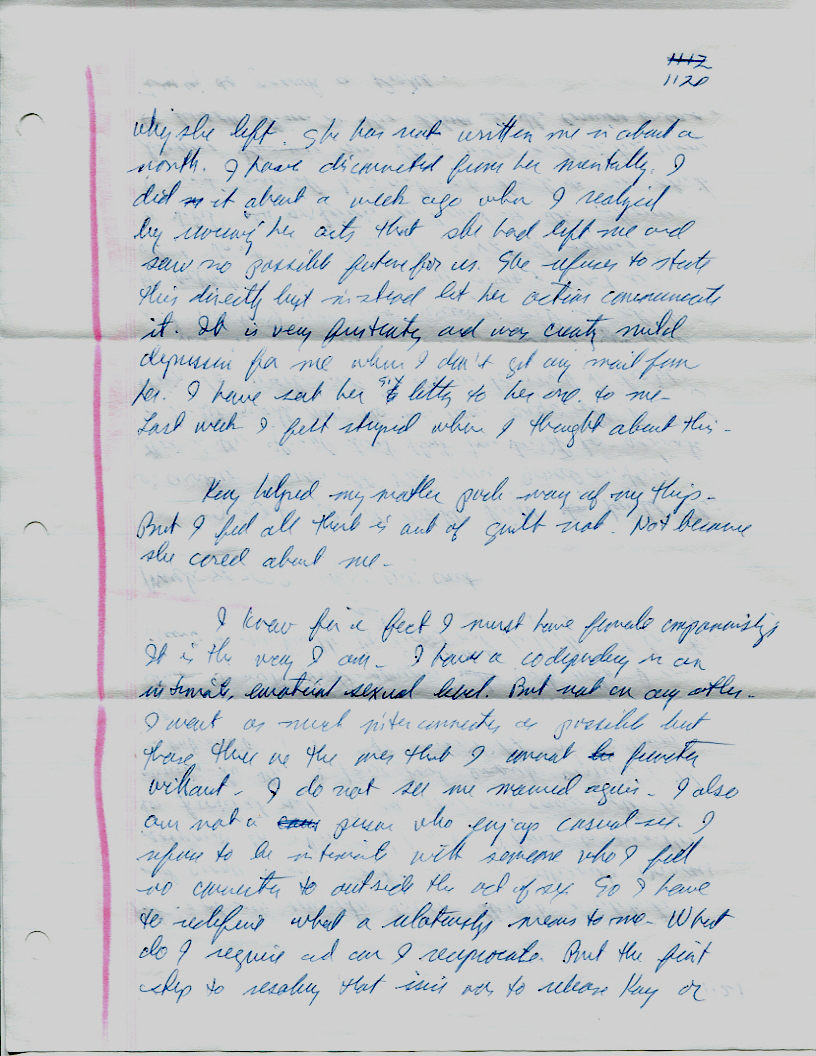 1112
1120
why she left. She has not written me in about a
month. I have disconnected from her mentally. I
did it about a week ago when I realized
by her acts that she had left me and
saw no possible future for us. She refuses to state
this directly but instead let her actions communicate
it. It is very and may create mild
depression for me when I don't get any mail from
her. I have sent her six letters to her one to me-
Last week I felt stupid when I thought about this-
Kay helped my mother pack many of my things-
But I feel all that is out of guilt not. Not because
she cared about me-
I know for a fact I must have female companionship
It is the way I am- I have a codependency in an
intimate, emotional sexual level. But not on any other-
I want as much interconnected as possible but
those three are the ones that I cannot function
without- I do not see me married again- I also
am not a person who enjoys casual sex. I
refuse to be intimate with someone who I feel
no connection to outside the act of sex So I have
to redefine what a relationship means to me- What
do I require and can I reciprocate. But the first
step to resolving that issue was to release Kay or